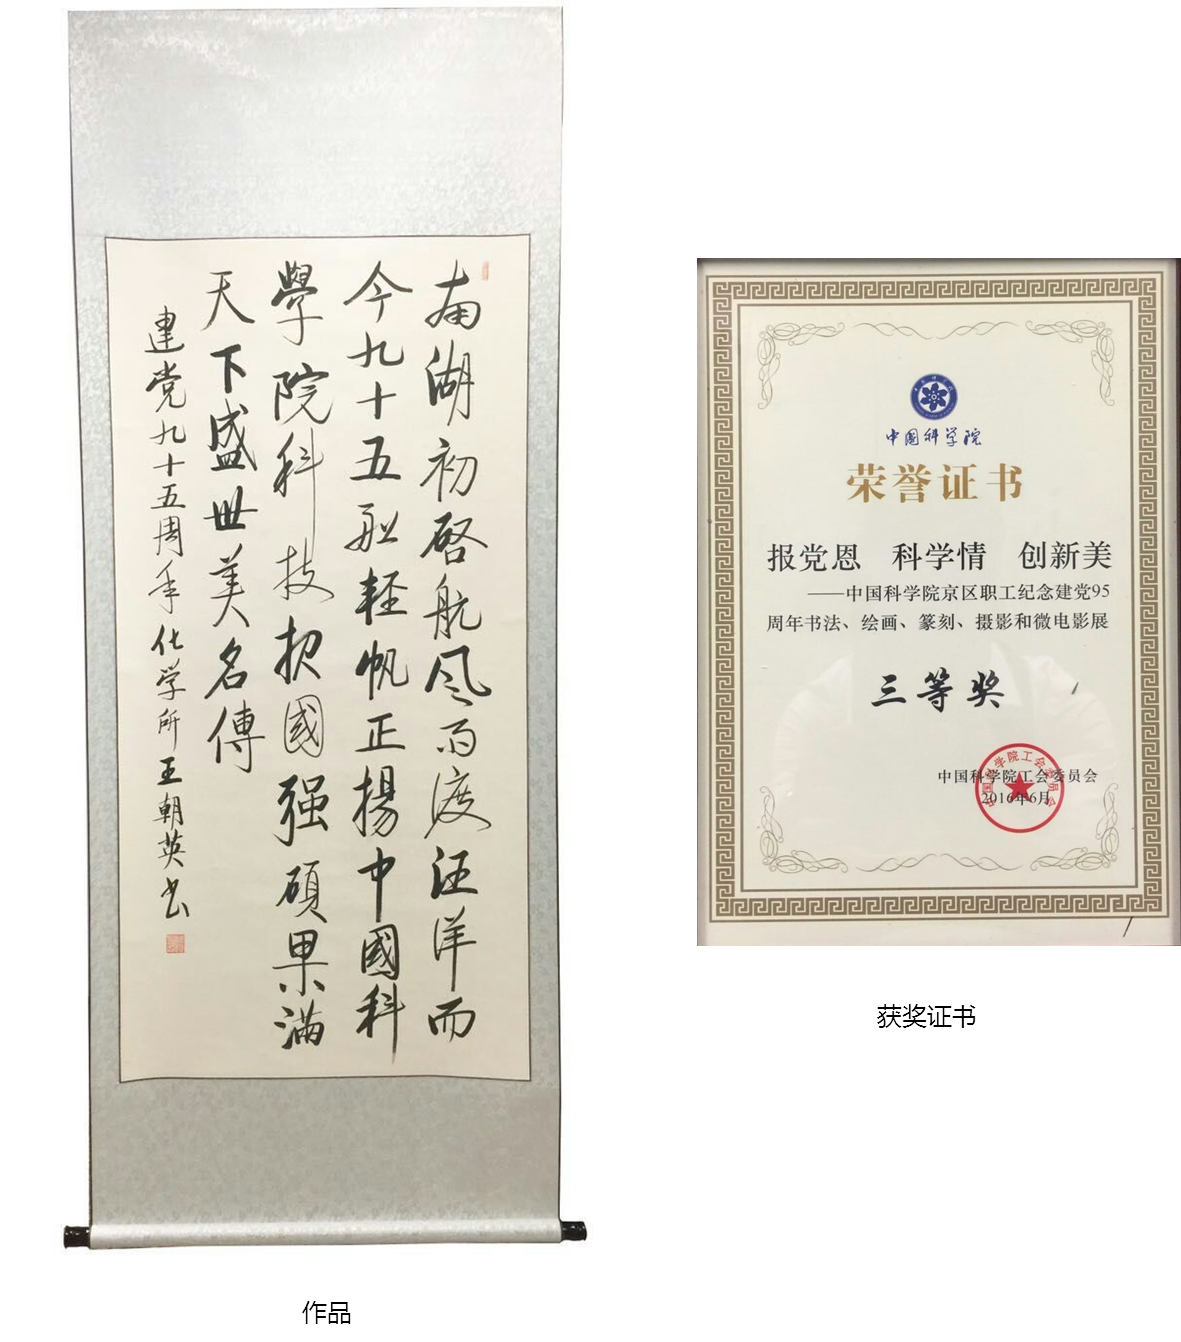 南湖初啓航风雨渡汪洋而
今九十五船輕帆正揚中國科
學院科技报國强碩果满
天下盛世美名傳
建党九十五周年 化学所 王朝英书
作品
中国科学院
荣誉证书
报党恩 科学情 创新美
——中国科学院京区职工纪念建党95
周年书法、绘画、篆刻、摄影和微电影展
三等奖
中国科学院工会委员会
2016年6月
中国科学院工会委员会
获奖证书